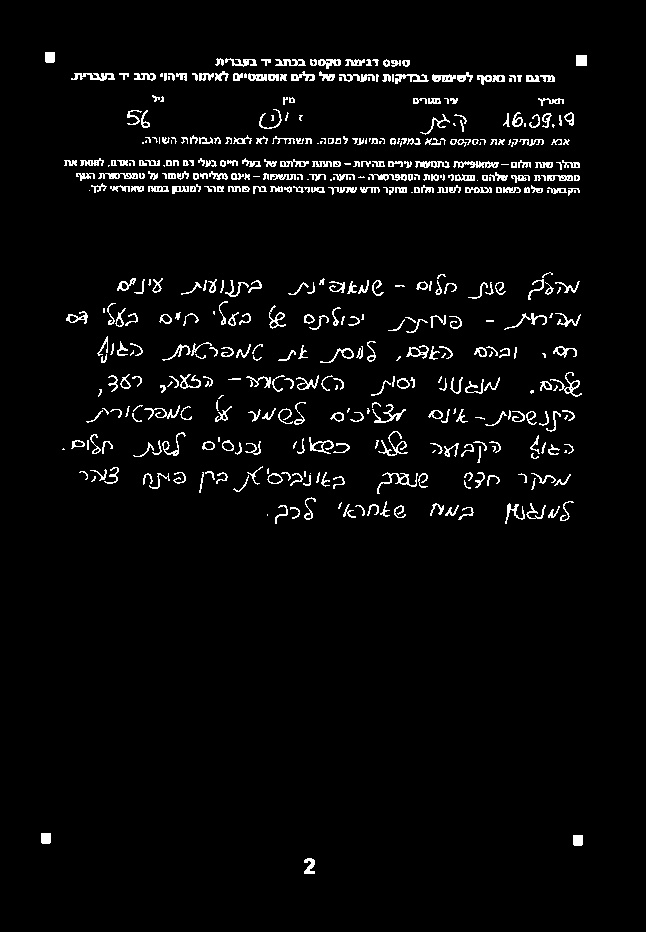 סופס דגימת טקסט בכתב יד בעברית
מדגם זה נאסף לשימוש בבדיקות והערכה של כלים אוטומטיים לאיתור וזיהוי כתב יד בעברית.
תאריך עיר מגורים מין גיל
16.09.19 56
אנא תעתיקו את הטקסט הבא במקום המיועד למטה. תשתדלו לא לצאת מגבולות השורה.
מהלך שנת חלום – שמאופיינת בתנועות עיניים מהירות – פוחתת יכולתם של בעלי חיים בעלי דם חם, ובהם האדם, לווסת את
טמפרטורת הגוף שלהם. מנגנוני ויסות הטמפרטורה – הזעה, רעד, התנשפות – אינם מצליחים לשמור על טמפרטורת הגוף
הקבועה שלנו כשאנו נכנסים לשנת חלום. מחקר חדש שנערך באוניברסיטת ברן פותח צוהר למנגנון במוח שאחראי לכך.
מהלך שנת חלום – שמאופיינת בתנועות עיניים
מהירות – פוחתת יכולתם של בעלי חיים בעלי דם
חם, ובהם האדם, לווסת את טמפרטורת הגוף
שלהם. מנגנוני ויסות הטמפרטורה – הזעה, רעד,
התנשפות – אינם מצליחים לשמור על טמפרטורת
הגוף הקבועה שלנו כשאנו נכנסים לשנת חלום.
מחקר חדש שנערך באוניברסיטת ברן פותח צוהר
למנגנון במוח שאחראי לכך.
2